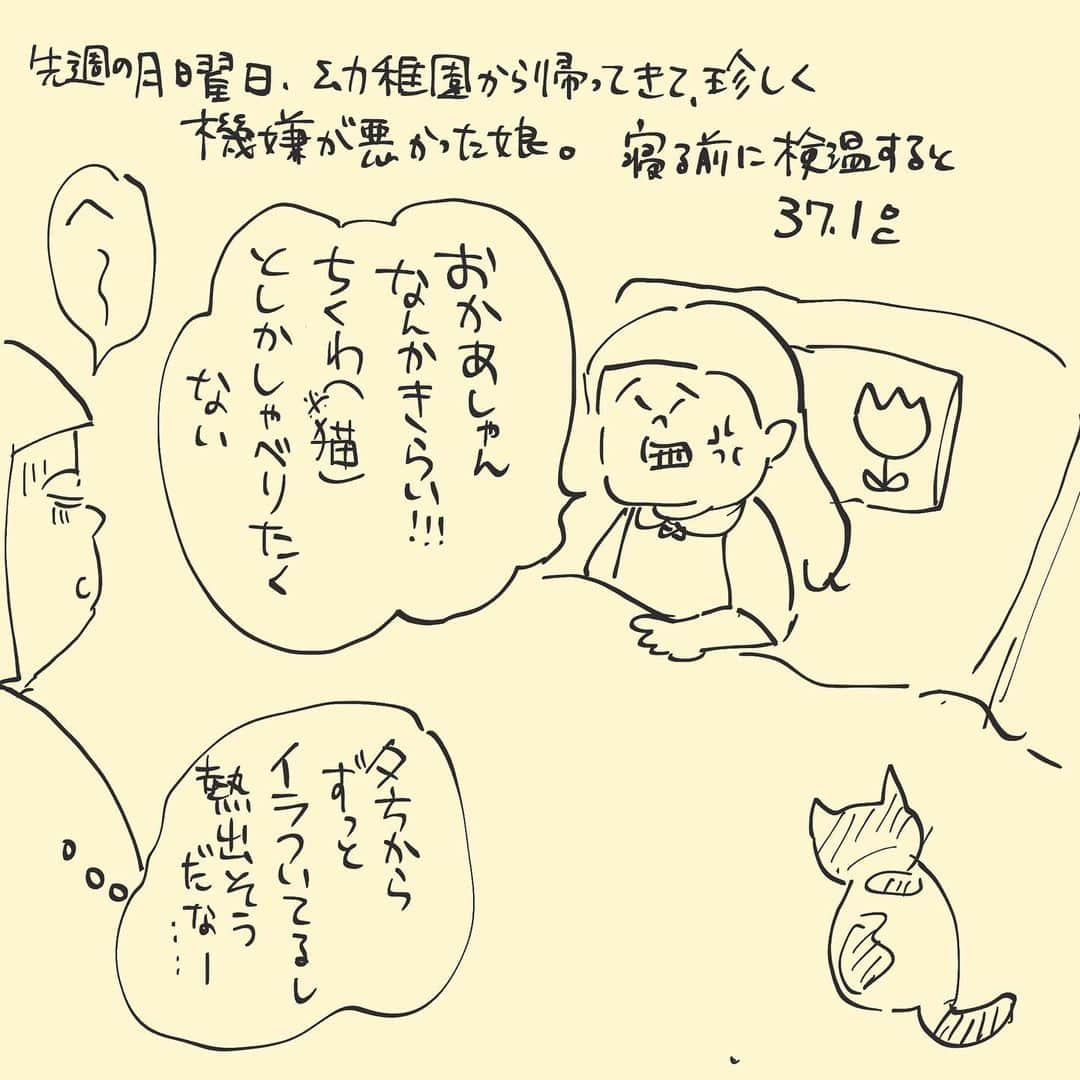 先週の月曜日、幼稚園から帰ってきて、珍しく
機嫌が悪かった娘。
寝る前に検温すると
37.1℃
へ〜
おかあしゃん
なんかきらい!!!
ちくわ(※猫)
としかしゃべりたく
ない
夕方から
ずっと
イラついてるし
熱出そう
だなー……